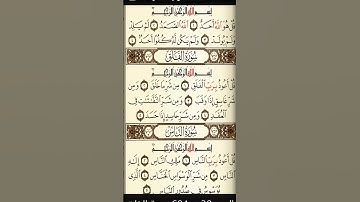 بِسْمِ اللَّهِ الرَّحْمَٰنِ الرَّحِيمِ
قُلْ هُوَ اللَّهُ أَحَدٌ ١ اللَّهُ الصَّمَدُ ٢ لَمْ يَلِدْ
وَلَمْ يُولَدْ ٣ وَلَمْ يَكُن لَّهُ كُفُوًا أَحَدٌ ٤
سُورَةُ الْفَلَقِ
بِسْمِ اللَّهِ الرَّحْمَٰنِ الرَّحِيمِ
قُلْ أَعُوذُ بِرَبِّ الْفَلَقِ ١ مِن شَرِّ مَا خَلَقَ ٢ وَمِن
شَرِّ غَاسِقٍ إِذَا وَقَبَ ٣ وَمِن شَرِّ النَّفَّاثَاتِ فِي
الْعُقَدِ ٤ وَمِن شَرِّ حَاسِدٍ إِذَا حَسَدَ ٥
سُورَةُ النَّاسِ
بِسْمِ اللَّهِ الرَّحْمَٰنِ الرَّحِيمِ
قُلْ أَعُوذُ بِرَبِّ النَّاسِ ١ مَلِكِ النَّاسِ ٢ إِلَٰهِ
النَّاسِ ٣ مِن شَرِّ الْوَسْوَاسِ الْخَنَّاسِ ٤ الَّذِي
يُوَسْوِسُ فِي صُدُورِ النَّاسِ